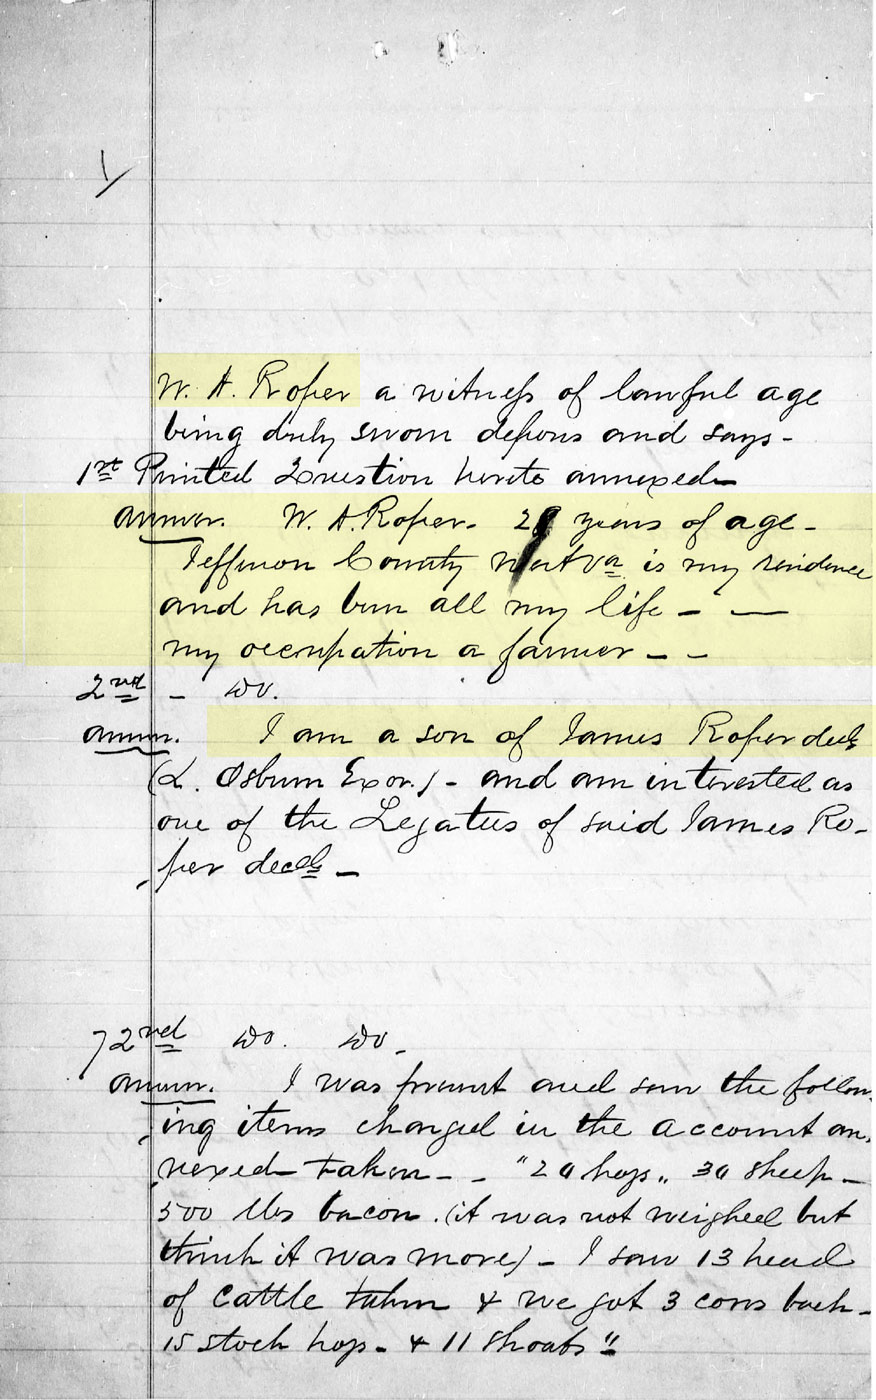 W. A. Roper a witness of lawful age
being duly sworn deposes and says -
1st Printed Question hereto annexed -
Answer. W. A. Roper - years of age -
Jefferson County West Va is my residence
and has been all my life - -
my occupation a farmer - -
2nd - Do.
Answer. I am a son of James Roper decd
(L. Osburn Exor.) - and am interested as
one of the Legatees of said James Ro-
per decd -
72nd Do. Do -
Answer. I was present and saw the follow-
ing items charged in the account an-
nexed taken - - "20 hogs,, 30 sheep -
500 lbs bacon. (it was not weighed but
think it was more) - I saw 13 head
of cattle taken & we got 3 cows back -
15 stock hogs - & 11 shoats"